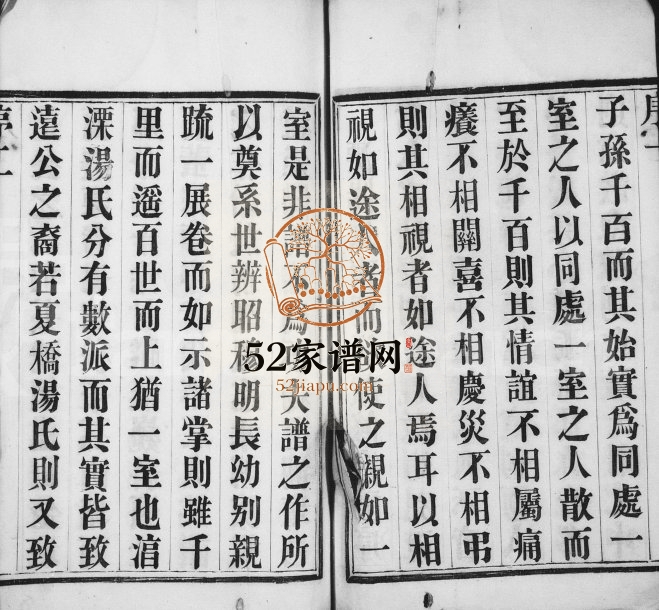 子孫千百而其始實爲同處一
室之人以同處一室之人散而
至於千百則其情誼不相屬痛
癢不相關喜不相慶災不相弔
則其相視者如途人焉耳以相
視如途人者而使之親如一
室是非譜不爲夫譜之作所
以奠系世辨昭穆明長幼別親
疏一展卷而如示諸掌則雖千
里而遥百世而上猶一室也
溧湯氏分有數派而其實皆致
遠公之裔若夏橋湯氏則又致
52家谱网
52jiapu.com